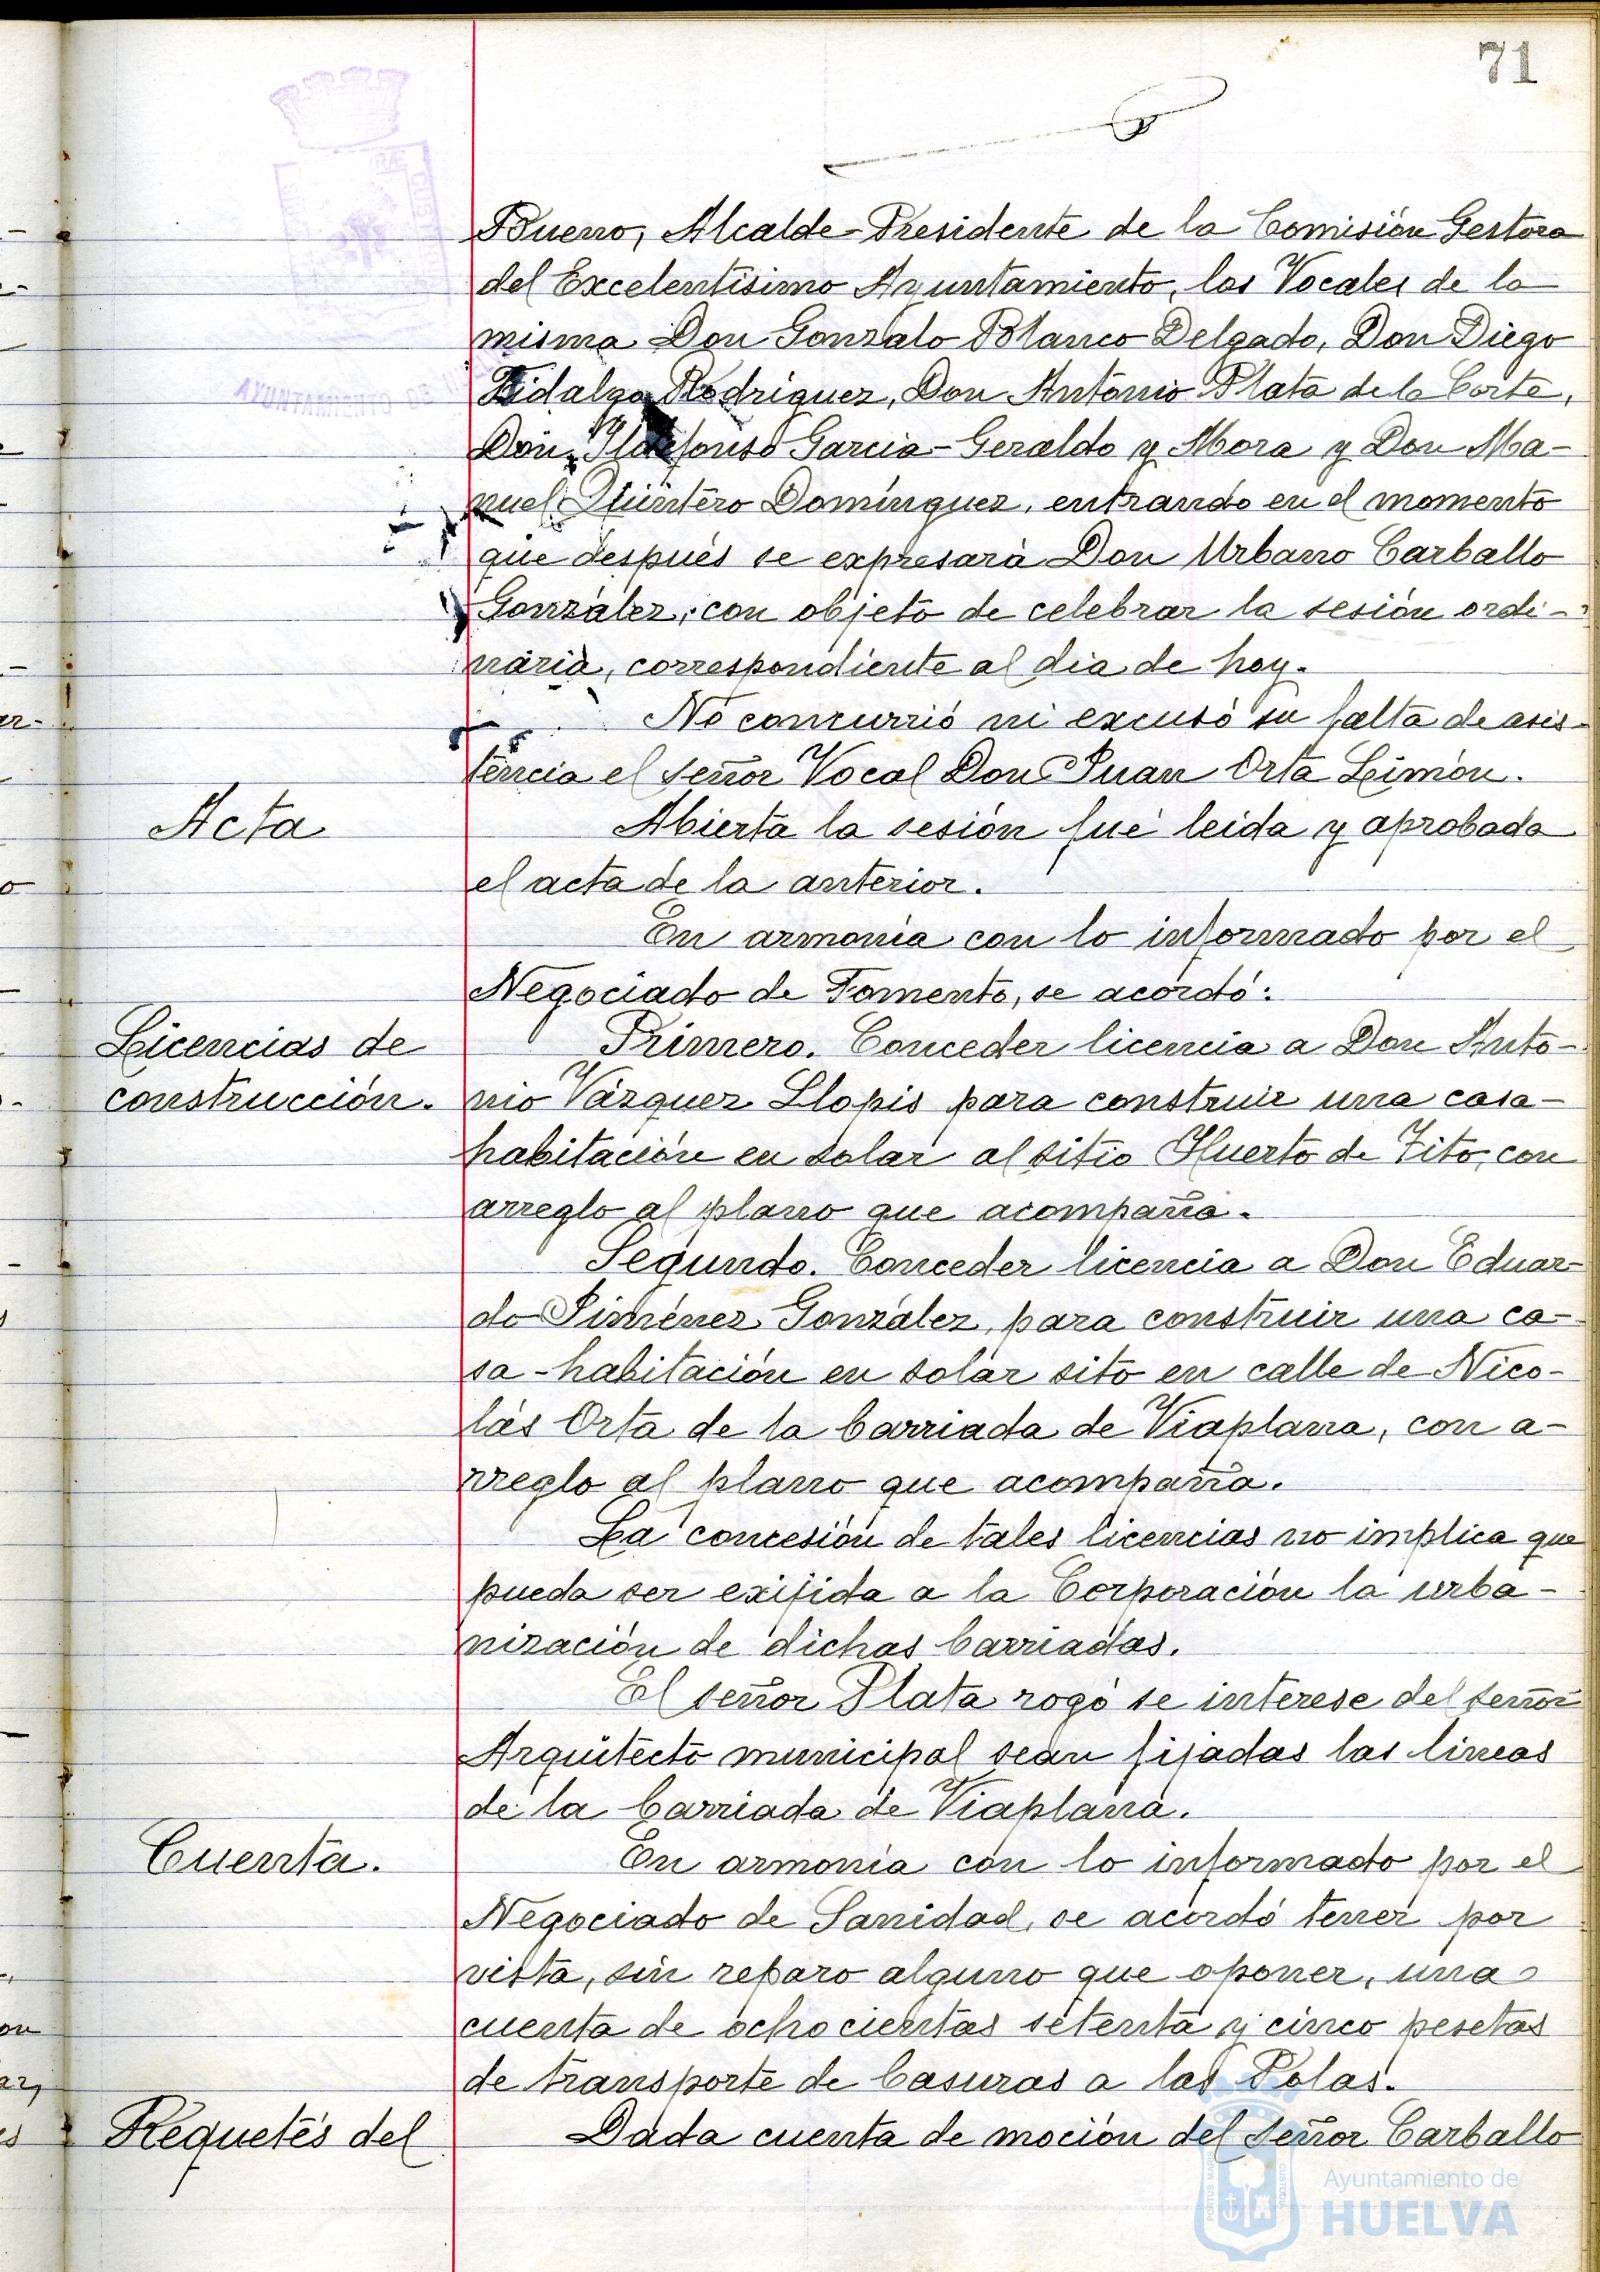 71
Bueno, Alcalde-Presidente de la Comisión Gestora
del Excelentísimo Ayuntamiento, los Vocales de la
misma Don Gonzalo Blanco Delgado, Don Diego
Fidalgo Rodríguez, Don Antonio Plata de la Corte,
Don Ildefonso García-Geraldo y Mora y Don Ma-
nuel Quintero Domínguez, entrando en el momento
que después se expresará Don Urbano Carballo
González, con objeto de celebrar la sesión ordi-
naria, correspondiente al día de hoy.
No concurrió ni excusó su falta de asis-
tencia el señor Vocal Don Juan Orta Limón.
Acta
Abierta la sesión fué leída y aprobada
el acta de la anterior.
En armonía con lo informado por el
Negociado de Fomento, se acordó:
Licencias de
construcción.
Primero. Conceder licencia a Don Anto-
nio Vázquez Llopis para construir una casa-
habitación en solar al sitio Huerto de Tito, con
arreglo al plano que acompaña.
Segundo. Conceder licencia a Don Eduar-
do Jiménez González, para construir una ca-
sa-habitación en solar sito en calle de Nico-
lás Orta de la barriada de Viaplana, con a-
rreglo al plano que acompaña.
La concesión de tales licencias no implica que
pueda ser exijida a la Corporación la urba-
nización de dichas barriadas.
El señor Plata rogó se interese del señor
Arquitecto municipal sean fijadas las líneas
de la barriada de Viaplana.
Cuenta.
En armonía con lo informado por el
Negociado de Sanidad, se acordó tener por
vista, sin reparo alguno que oponer, una
cuenta de ochocientas setenta y cinco pesetas
de transporte de basuras a las Polas.
Requetés del
Dada cuenta de moción del señor Carballo
AYUNTAMIENTO DE
Ayuntamiento de
HUELVA